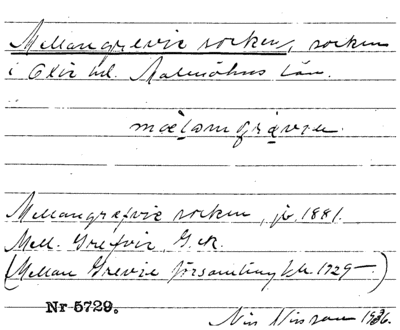 Mellangrevie socken, socken
i Oxie hd. Malmöhus län.
Mellangrefvie socken, jb. 1881.
Mell. Grefvie G.K.
(Mellan Grevie församling kb 1725–)
Nr 5729.
Nils Nilsson 1936.